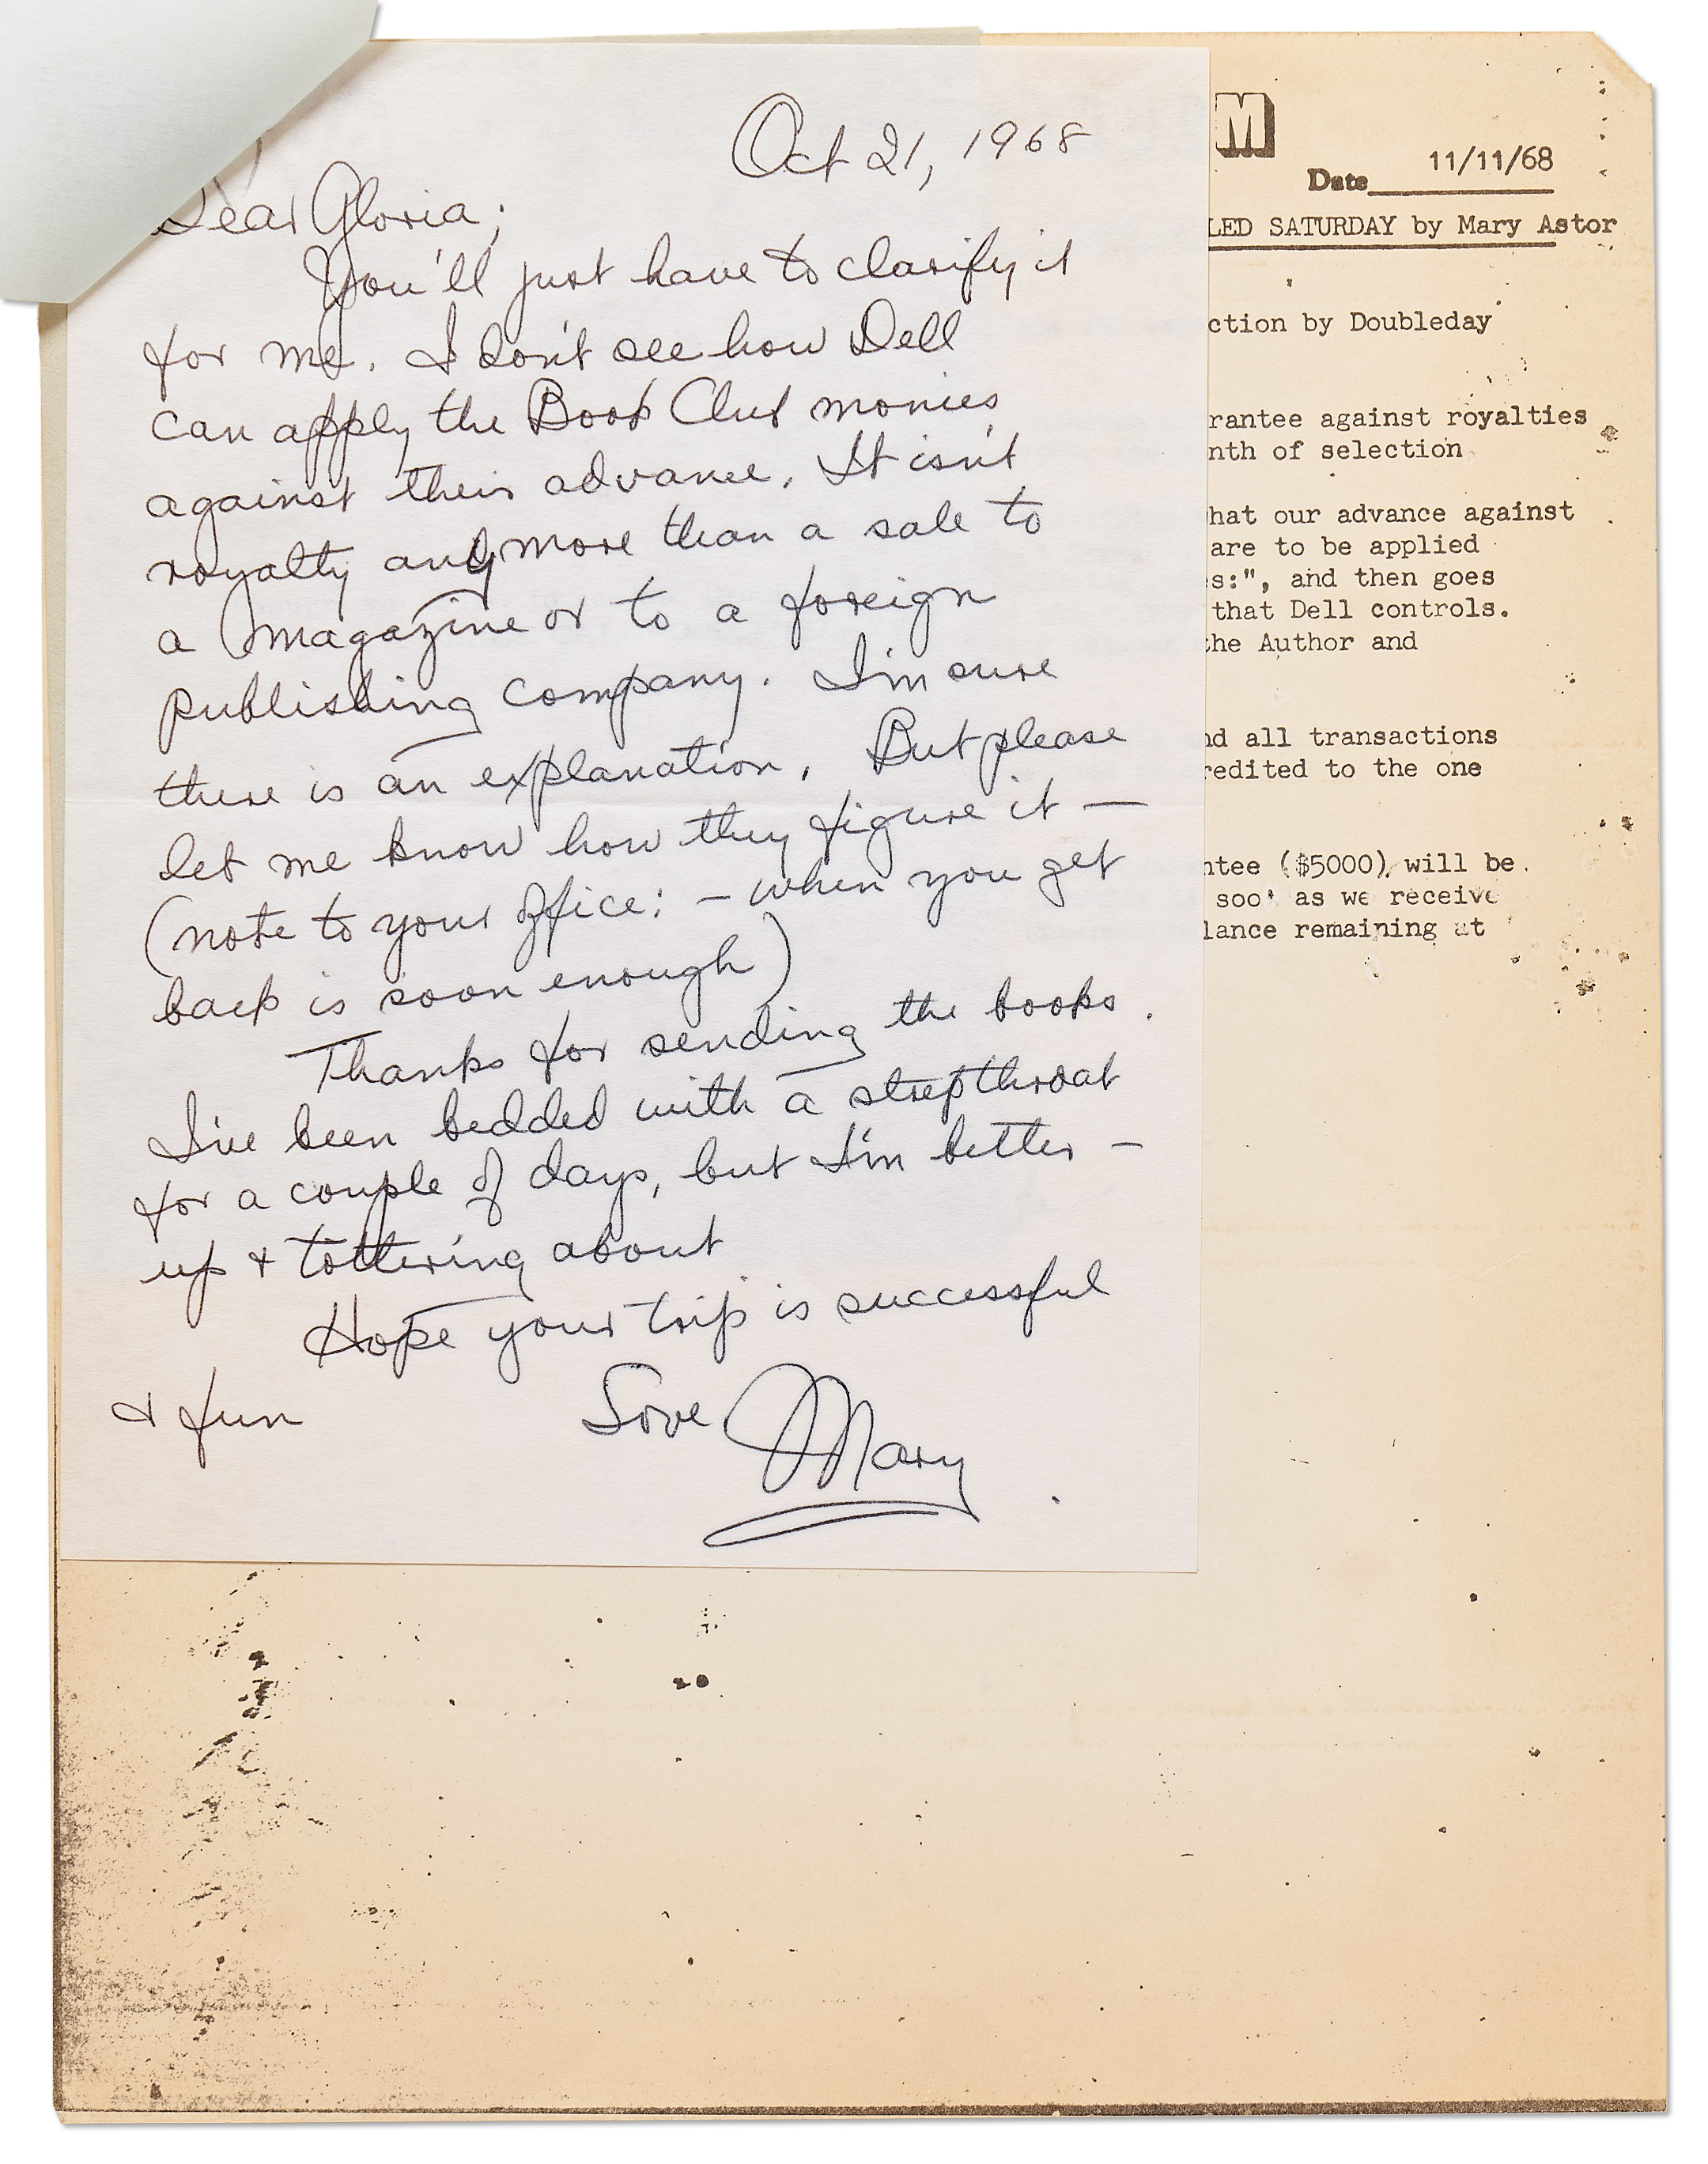 Oct 21, 1968
Dear Gloria;
You'll just have to clarify it
for me. I don't see how Dell
can apply the Book Club monies
against their advance. It isn't
royalty any more than a sale to
a magazine or to a foreign
publishing company. I'm sure
there is an explanation. But please
let me know how they figure it —
(note to your office: - when you get
back is soon enough)
Thanks for sending the books.
I've been bedded with a strepthroat
for a couple of days, but I'm better -
up + tottering about
Hope your trip is successful
& fun
Love Mary
M
Date 11/11/68
LED SATURDAY by Mary Astor
ction by Doubleday
rantee against royalties
nth of selection
hat our advance against
are to be applied
s:", and then goes
that Dell controls.
the Author and
nd all transactions
redited to the one
ntee ($5000) will be
soo as we receive
lance remaining at